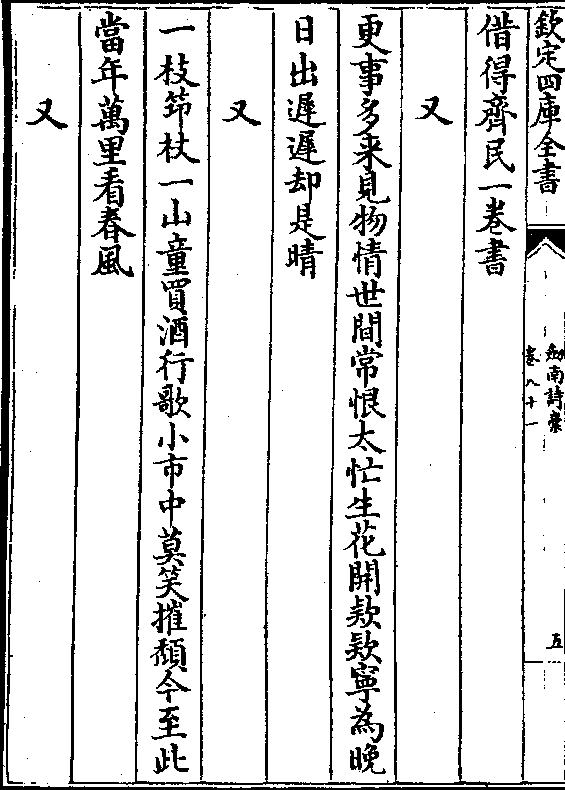 欽定四庫全書
劎南詩藁
卷八十一
五
借得齊民一卷書
又
更事多来見物情世間常恨太忙生花開欵欵寧為晚
日出遲遲却是晴
又
一枝筇杖一山童買酒行歌小市中莫笑摧頽今至此
當年萬里看春風
又